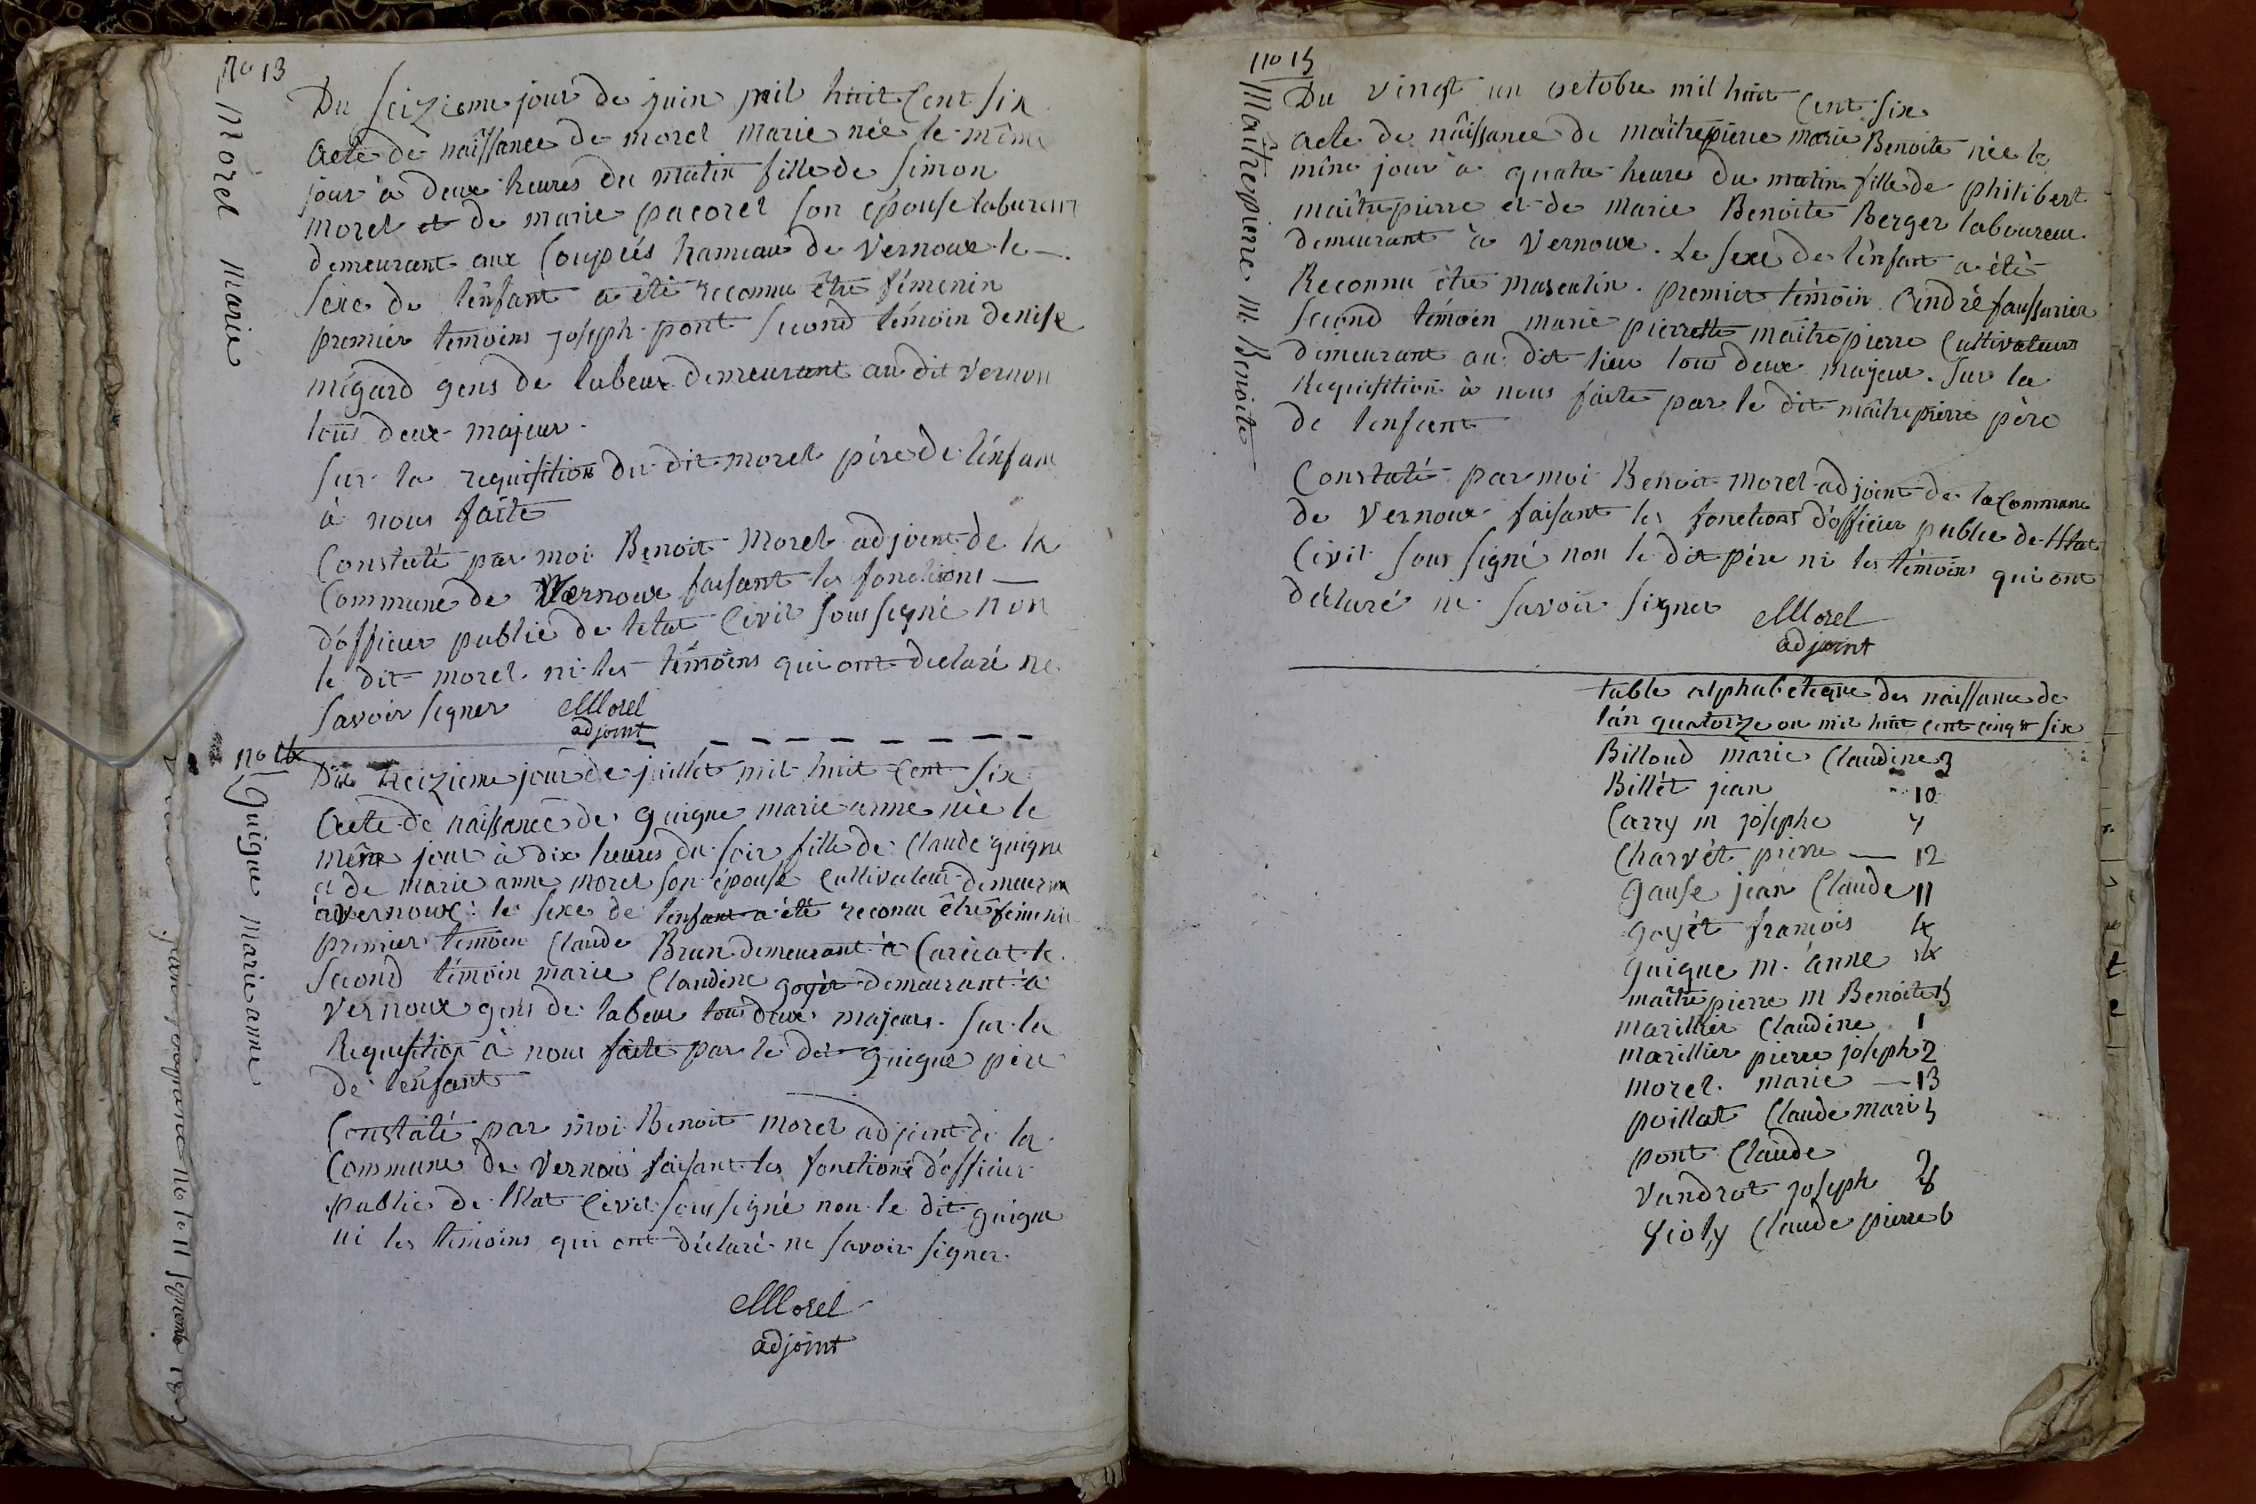 no 13
Morel Marie
Du seizieme jour de juin mil huit Cent Six
Acte de naissance de morel marie née le même
jour à deux heures du matin fille de simon
morel et de marie pacorel son épouse labureur
demeurant aux Coupées hameau de Vernoux le
sexe de l'énfant a été reconnu être féminin
premier témoins joseph pont second témoin denise
mégard gens de labeur demeurant au dit vernou
tous deux majeur.
sur la requisition du dit morel père de l'énfant
à nous faite
Constaté par moi Benoit Morel adjoint de la
Commune de Vernoux faisant les fonctions
d'officier public de letat Civil soussigné non
le dit morel ni les témoins qui ont déclaré ne
savoir signer Morel
adjoint
no 14
Guigue Marie anne
Du treizieme jour de juillét mil huit Cent Six
Acte de naissance de guigue marie anne née le
même jour à dix heures du soir fille de Claude guigue
et de marie anne morel son épouse Cultivateur demeurant
à vernoux : le sexe de lenfant a été reconu être féminin
premier témoin Claude Brun demeurant à Curciat le
second témoin marie Claudine goyét demeurant à
vernoux gens de labeur tous deux majeurs. sur la
Requisition à nous faite par le dit guigue père
de lenfant
Constaté par moi Benoit morel adjoint de la
Commune de Vernous faisant les fonctions d'officier
public de létat Civil soussigné non le dit guigue
ni les témoins qui ont déclaré ne savoir signer.
Morel
adjoint
no 15
Maîtrepierre M. Benoite
Du vingt un octobre mil huit Cent six
acte de nâissance de maîtrepierre marie Benoite née le
même jour à quatre heures du matin fille de philibert
maîtrepierre et de marie Benoite Berger laboureur
demeurant à Vernoux. Le sexe de l'énfant a été
Reconnu être masculin. premier témoin André faussurier
second témoin marie pierrette maîtrepierre Cultivateurs
demeurant au dit lieu tous deux majeur. sur la
Requisition à nous faite par le dit maîtrepierre père
de lenfant
Constaté par moi Benoit morel adjoint de la Commune
de Vernoux faisant les fonctions d'officier public de l'état
Civil sous signé non le dit père ni les témoins qui ont
déclaré ne savoir signer Morel
adjoint
table alphabetique des naissance de
l'án quatorze ou mil huit cent cinq et six
Billoud marie Claudine 3
Billét jean 10
Carry m josephe 7
Charvét pierre — 12
Gause jean Claude 11
goyét francois 4
guigue m. anne 14
maître pierre m Benoite 15
marillier Claudine 1
marillier pierre joseph 2
morel marie — 13
poillat Claude mari 5
pont Claude 9
Vandrot joseph 8
Claude pierre 6